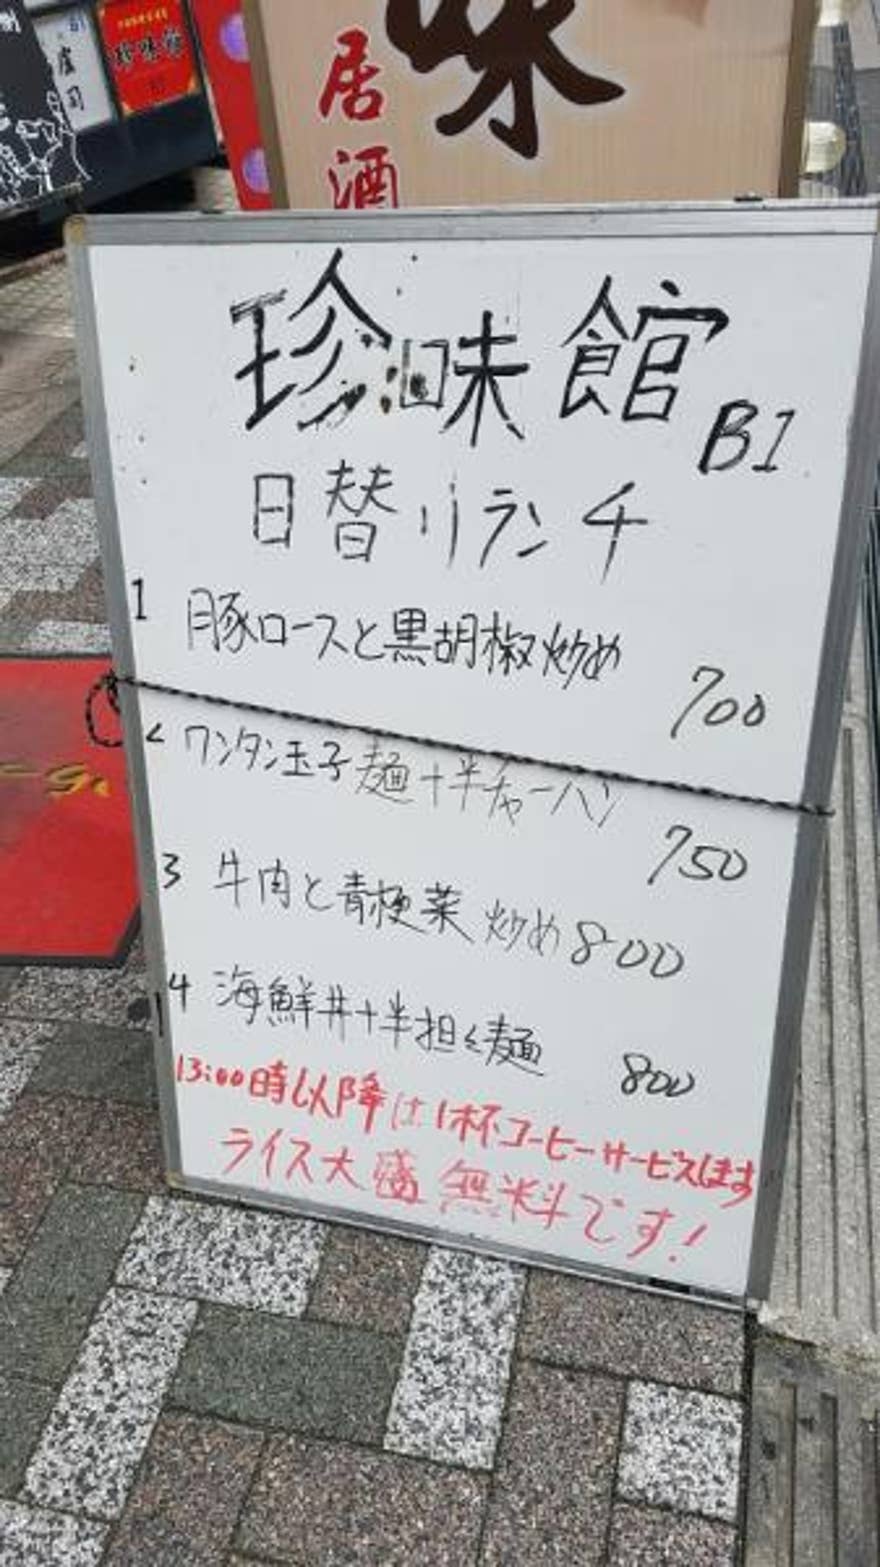 珍味館
味
居酒
珍味館 B1
日替りランチ
1 豚ロースと黒胡椒炒め 700
2 ワンタン玉子麺+半チャーハン 750
3 牛肉と青梗菜炒め 800
4 海鮮丼+半担々麺 800
13:00時以降は1杯コーヒーサービスします
ライス大盛無料です!